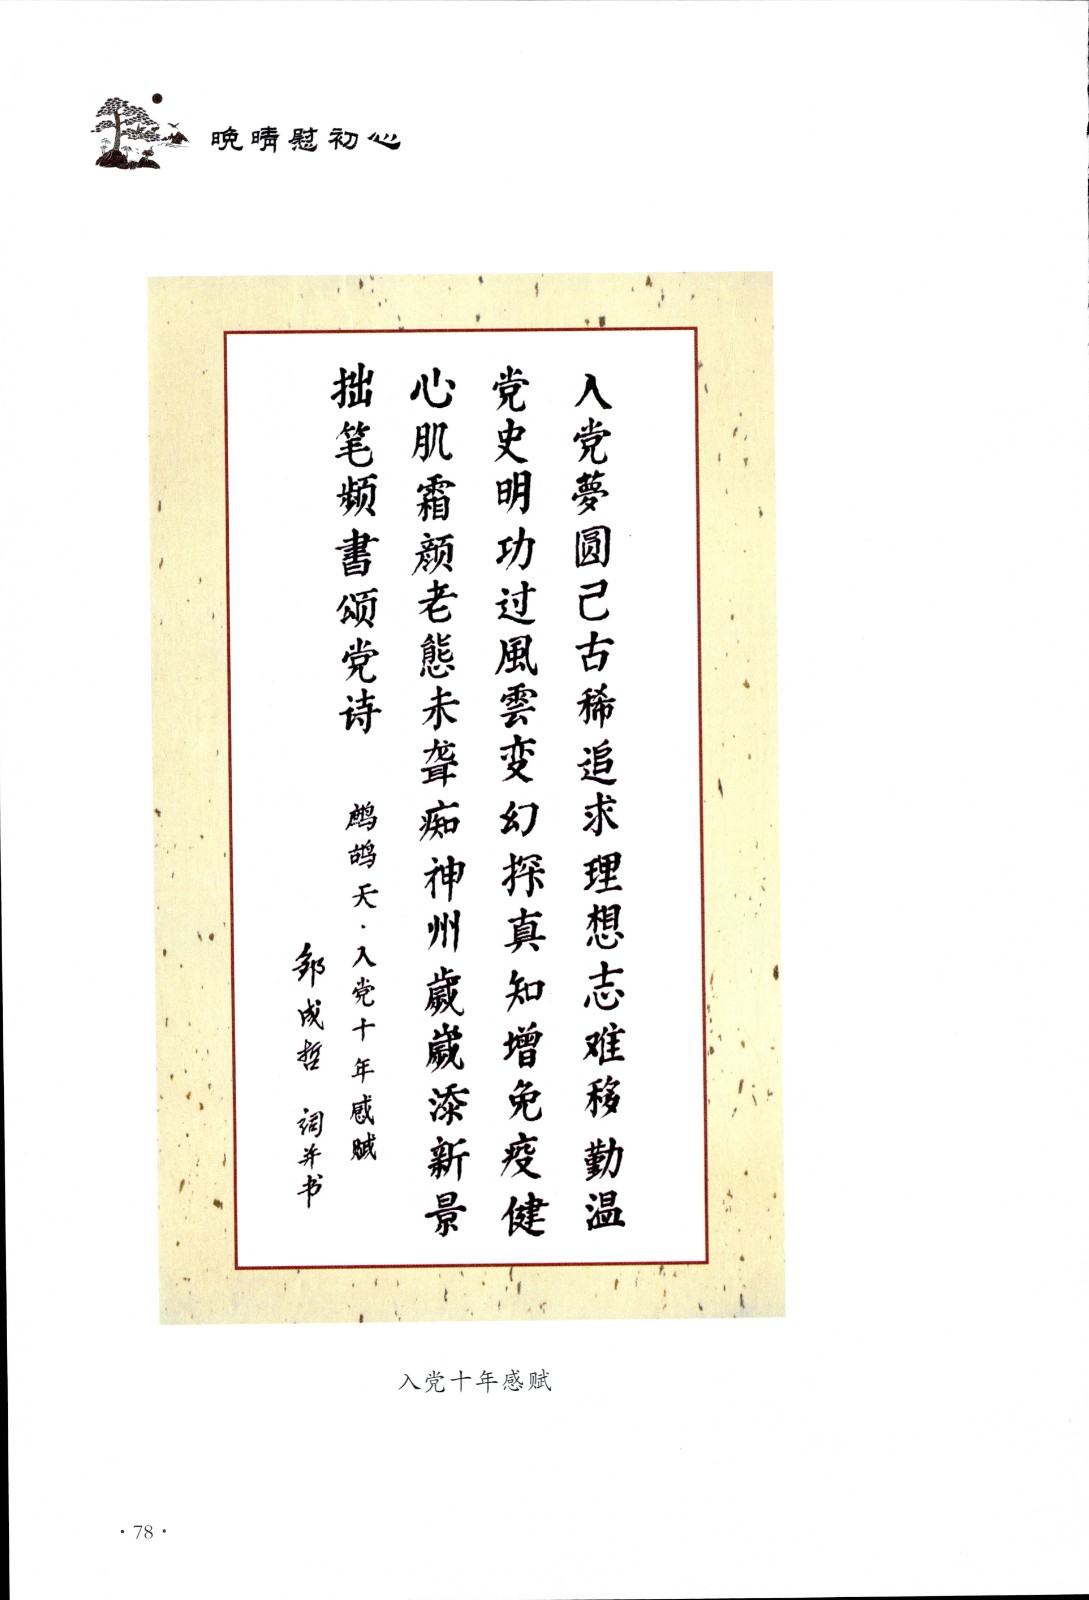 晚晴慰初心
入党夢圆己古稀追求理想志难移勤温
党史明功过風雲变幻探真知增免疫健
心肌霜颜老態未聋痴神州歲歲添新景
拙笔频書颂党诗
鹧鸪天·入党十年感赋
邹成哲 词并书
入党十年感赋
·78·